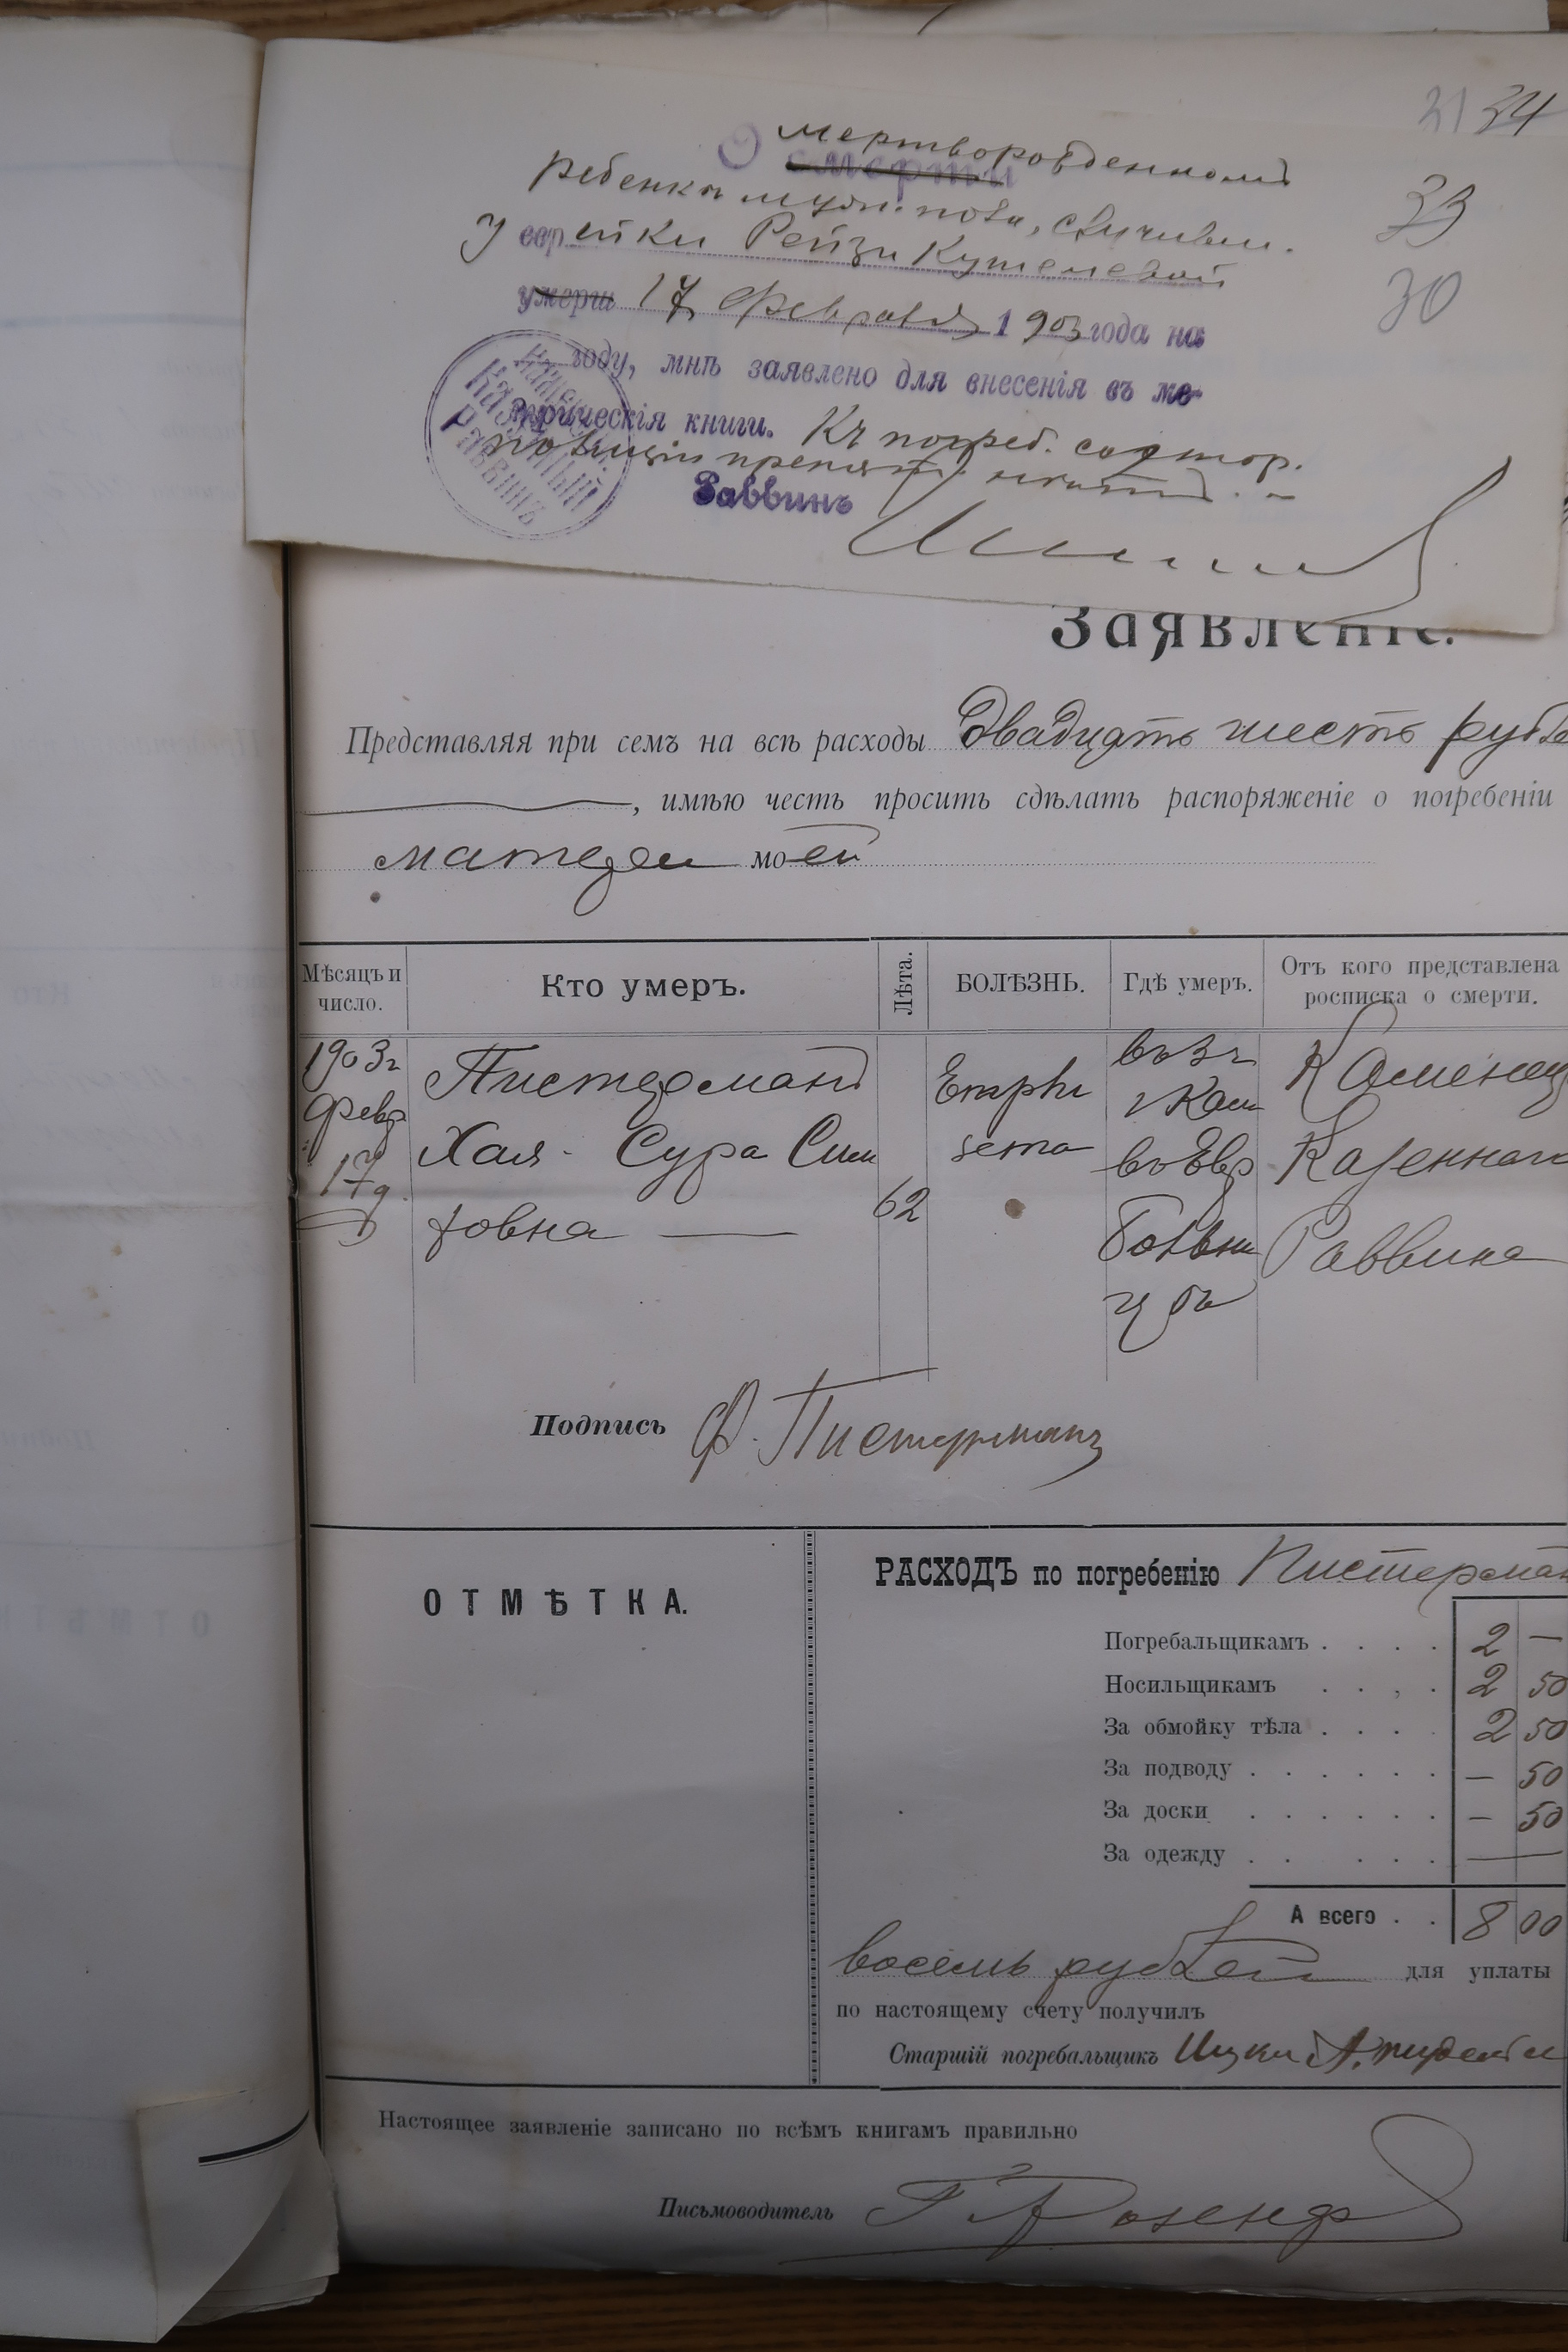 31 34
33
30
О мертворожденномъ
смерти
ребенкѣ мужск. пола,
У еврейки Рейзи Кушелевой
умерш 17 февраля 1903 года на
году, мнѣ заявлено для внесенія въ ме-
трическія книги. Къ погреб. со стор.
полиціи препятст.
Раввинъ
Казенный
Раввинъ
Заявленіе.
Представляя при семъ на всѣ расходы Двадцать шесть рубле
, имѣю честь просить сдѣлать распоряженіе о погребеніи
матери моей
Мѣсяцъ и число.
Кто умеръ.
Лѣта.
БОЛѢЗНЬ.
Гдѣ умеръ.
Отъ кого представлена росписка о смерти.
1903 г
Февр
17 д.
Пистерманъ
Хая - Сура Сим
ховна
62
Emphi
sema
въ г
Кам
въ Евр
больни
цѣ
Каменец
Казеннаго
Раввина
Подпись Ф. Пистерманъ
ОТМѢТКА.
РАСХОДЪ по погребенію Пистерман
Погребальщикамъ . . . . 2 —
Носильщикамъ . . . . 2 50
За обмойку тѣла . . . . 2 50
За подводу . . . . . . — 50
За доски . . . . . . — 50
За одежду . . . . . . —
А всего . . 8 00
восемь рублей для уплаты
по настоящему счету получилъ
Старшій погребальщикъ Ицко
Настоящее заявленіе записано по всѣмъ книгамъ правильно
Письмоводитель